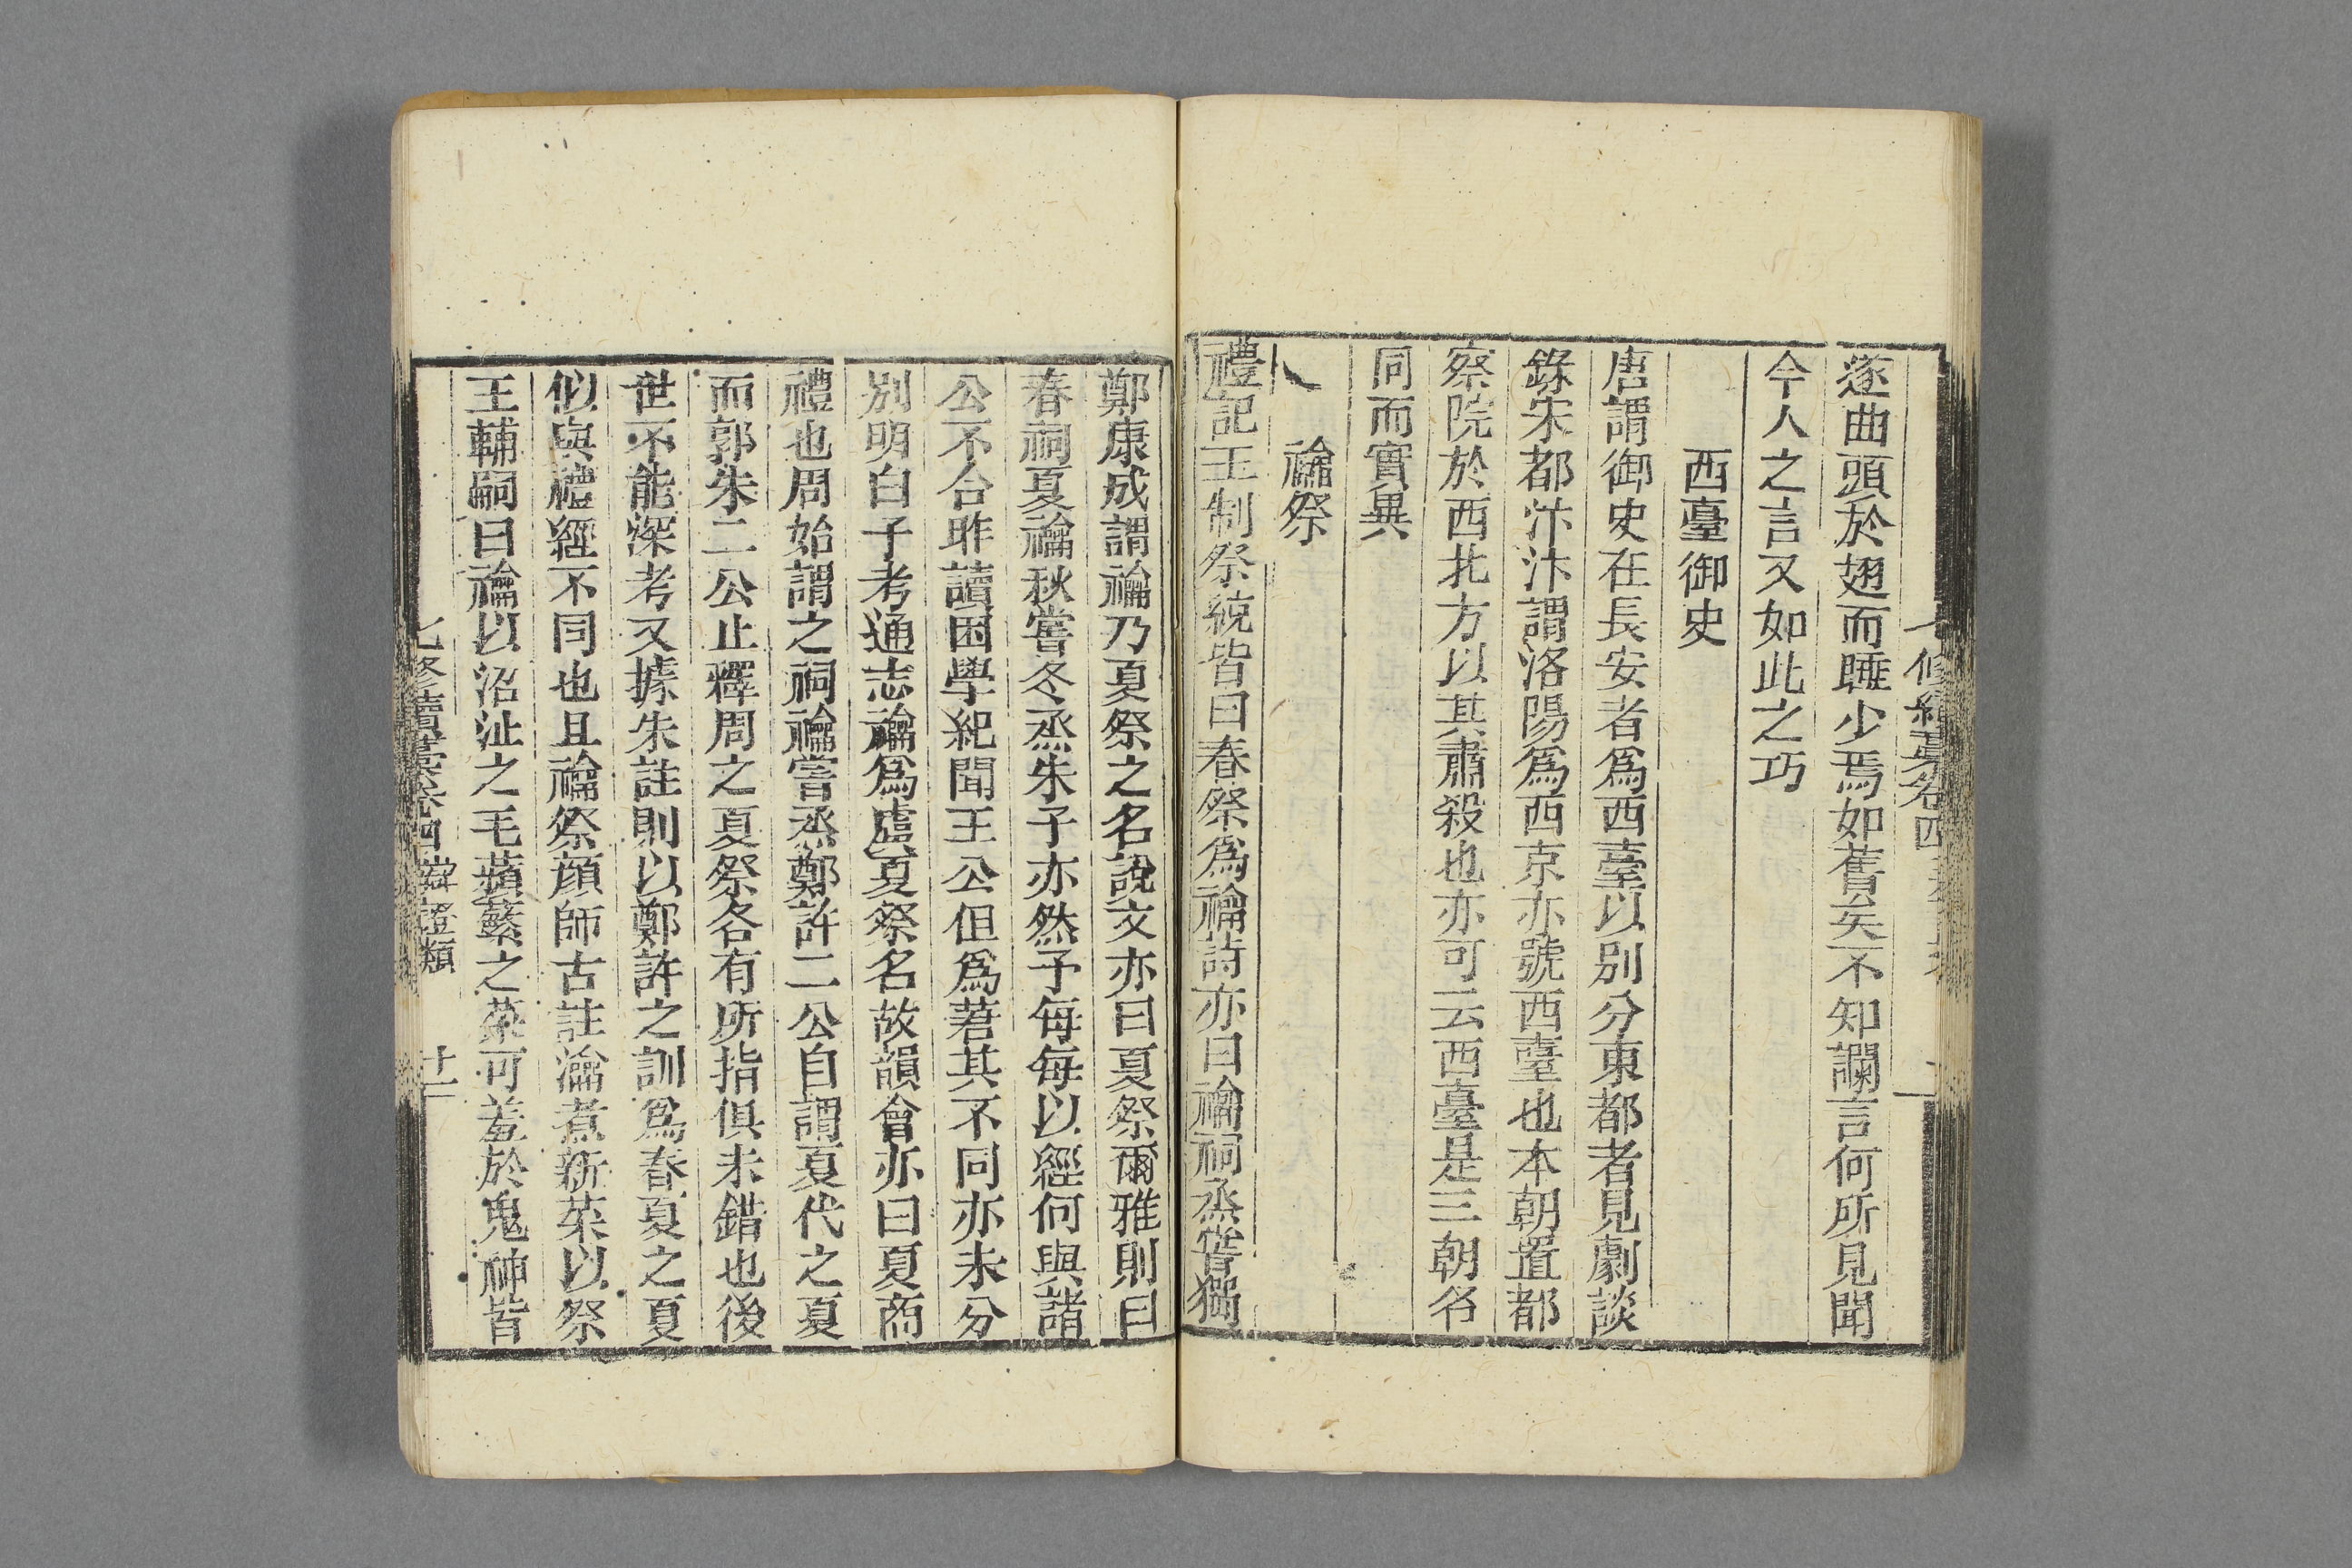 逐曲頭於翅而睡少焉如舊矣不知讕言何所見聞
今人之言又如此之巧
西臺御史
唐謂御史在長安者為西臺以別分東都者見劇談
錄宋都汴汴謂洛陽為西京亦號西臺也本朝置都
察院於西北方以其肅殺也亦可云西臺是三朝名
同而實異
禴祭
禮記王制祭統皆曰春祭為禴詩亦曰禴祠烝嘗獨
鄭康成謂禴乃夏祭之名說文亦曰夏祭爾雅則曰
春祠夏禴秋嘗冬烝朱子亦然予每每以經何與諸
公不合昨讀困學紀聞王公但為著其不同亦未分
別明白予考通志禴為虞夏祭名故韻會亦曰夏商
禮也周始謂之祠禴嘗烝鄭許二公自謂夏代之夏
而郭朱二公止釋周之夏祭各有所指俱未錯也後
世不能深考又據朱註則以鄭許之訓為春夏之夏
似與禮經不同也且禴祭顏師古註瀹煮新菜以祭
王輔嗣曰禴以沼沚之毛蘋蘩之菜可羞於鬼神皆
七修續藁卷四 辯證類 十一